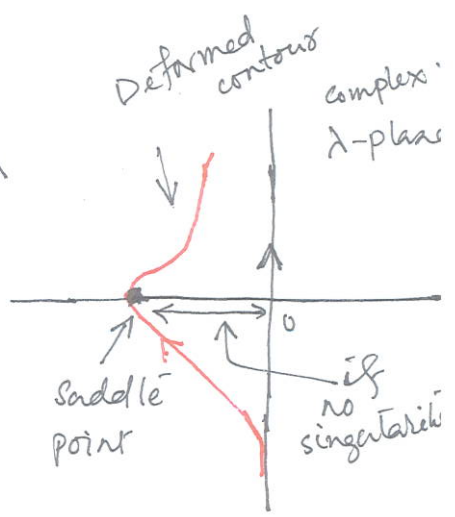 Deformed
contour
complex
λ-plane
0
Saddle
point
if
no
singularit